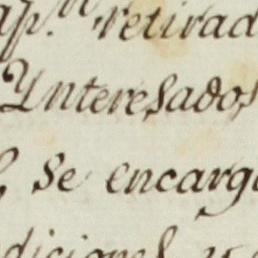 retirad
Ynteresados
se encarg
diciones y